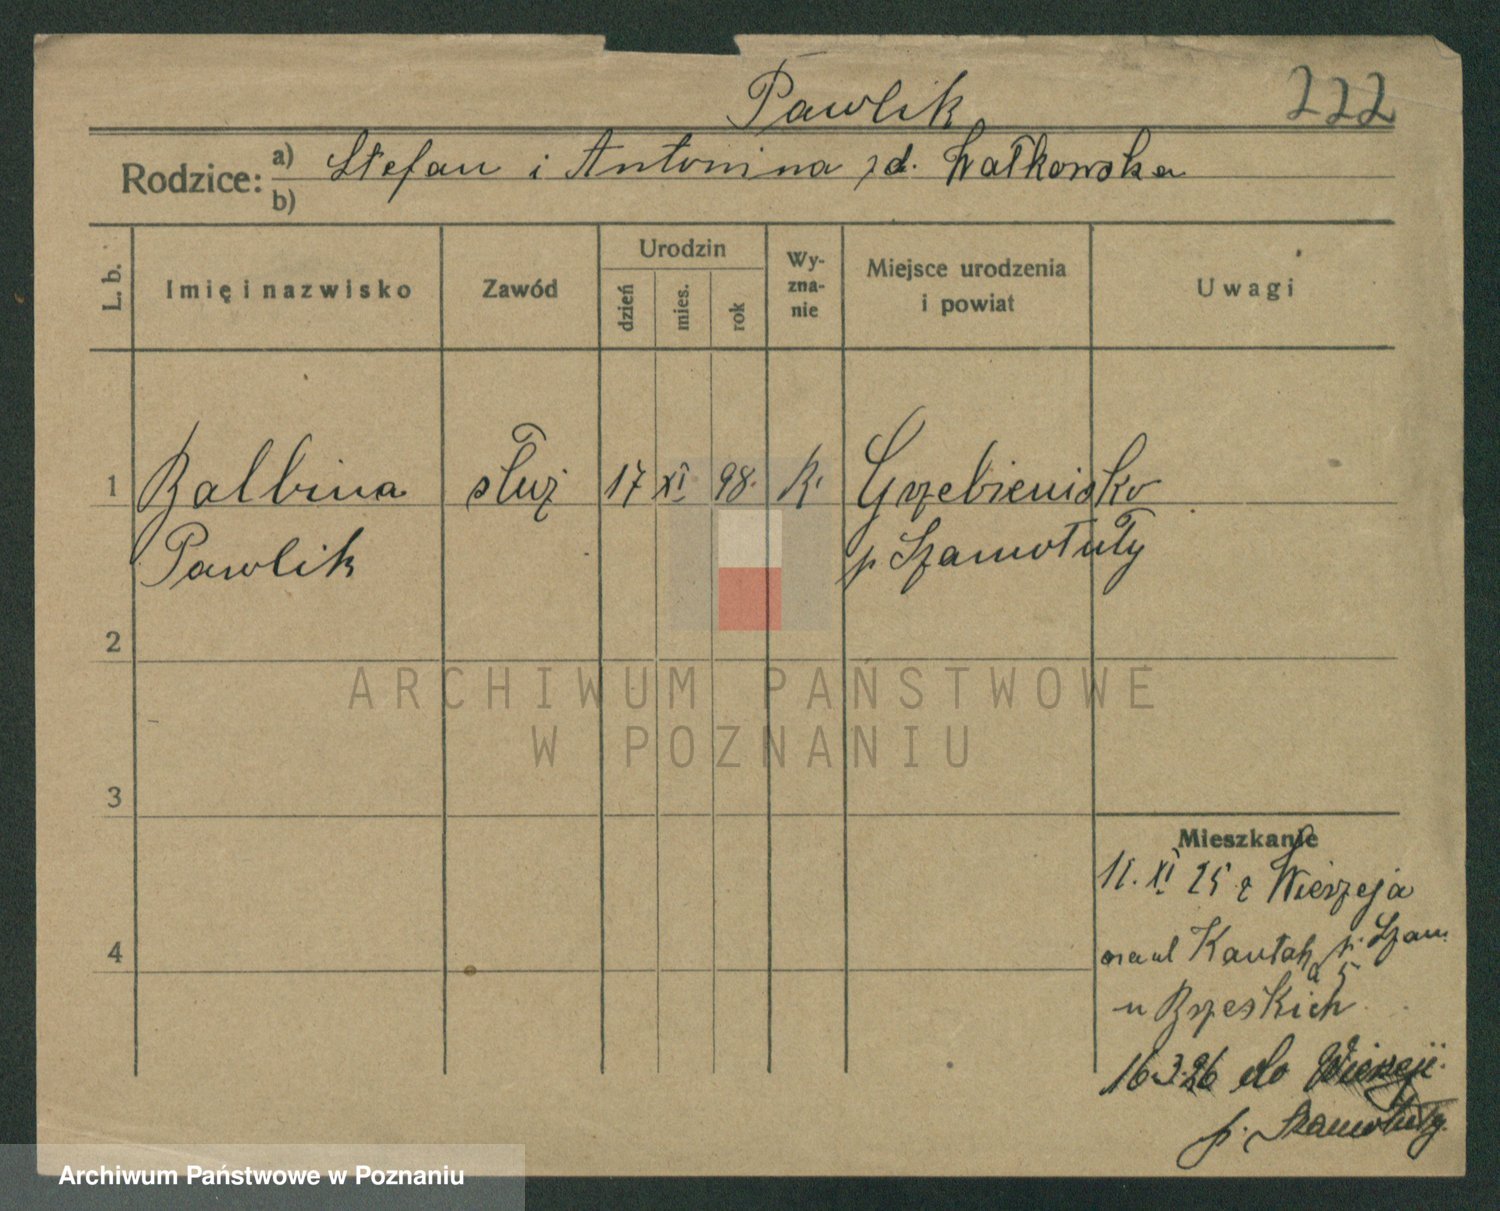 Pawlik 222
Rodzice: a) Stefan i Antonina zd. Wałkowska
b)
L. b. Imię i nazwisko Zawód Urodzin dzień mies. rok Wy-zna-nie Miejsce urodzenia i powiat Uwagi
1 Balbina służ 17 XI 98. K. Grzebienisko
Pawlik p. Szamotuły
2
ARCHIWUM PAŃSTWOWE
W POZNANIU
3
Mieszkanie
11. XI 25 z Wierzeja
p. Szam
4 na ul Kantaka 5
u Brzeskich
16.3.26 do Wierzeji
p. Szamotuły
Archiwum Państwowe w Poznaniu